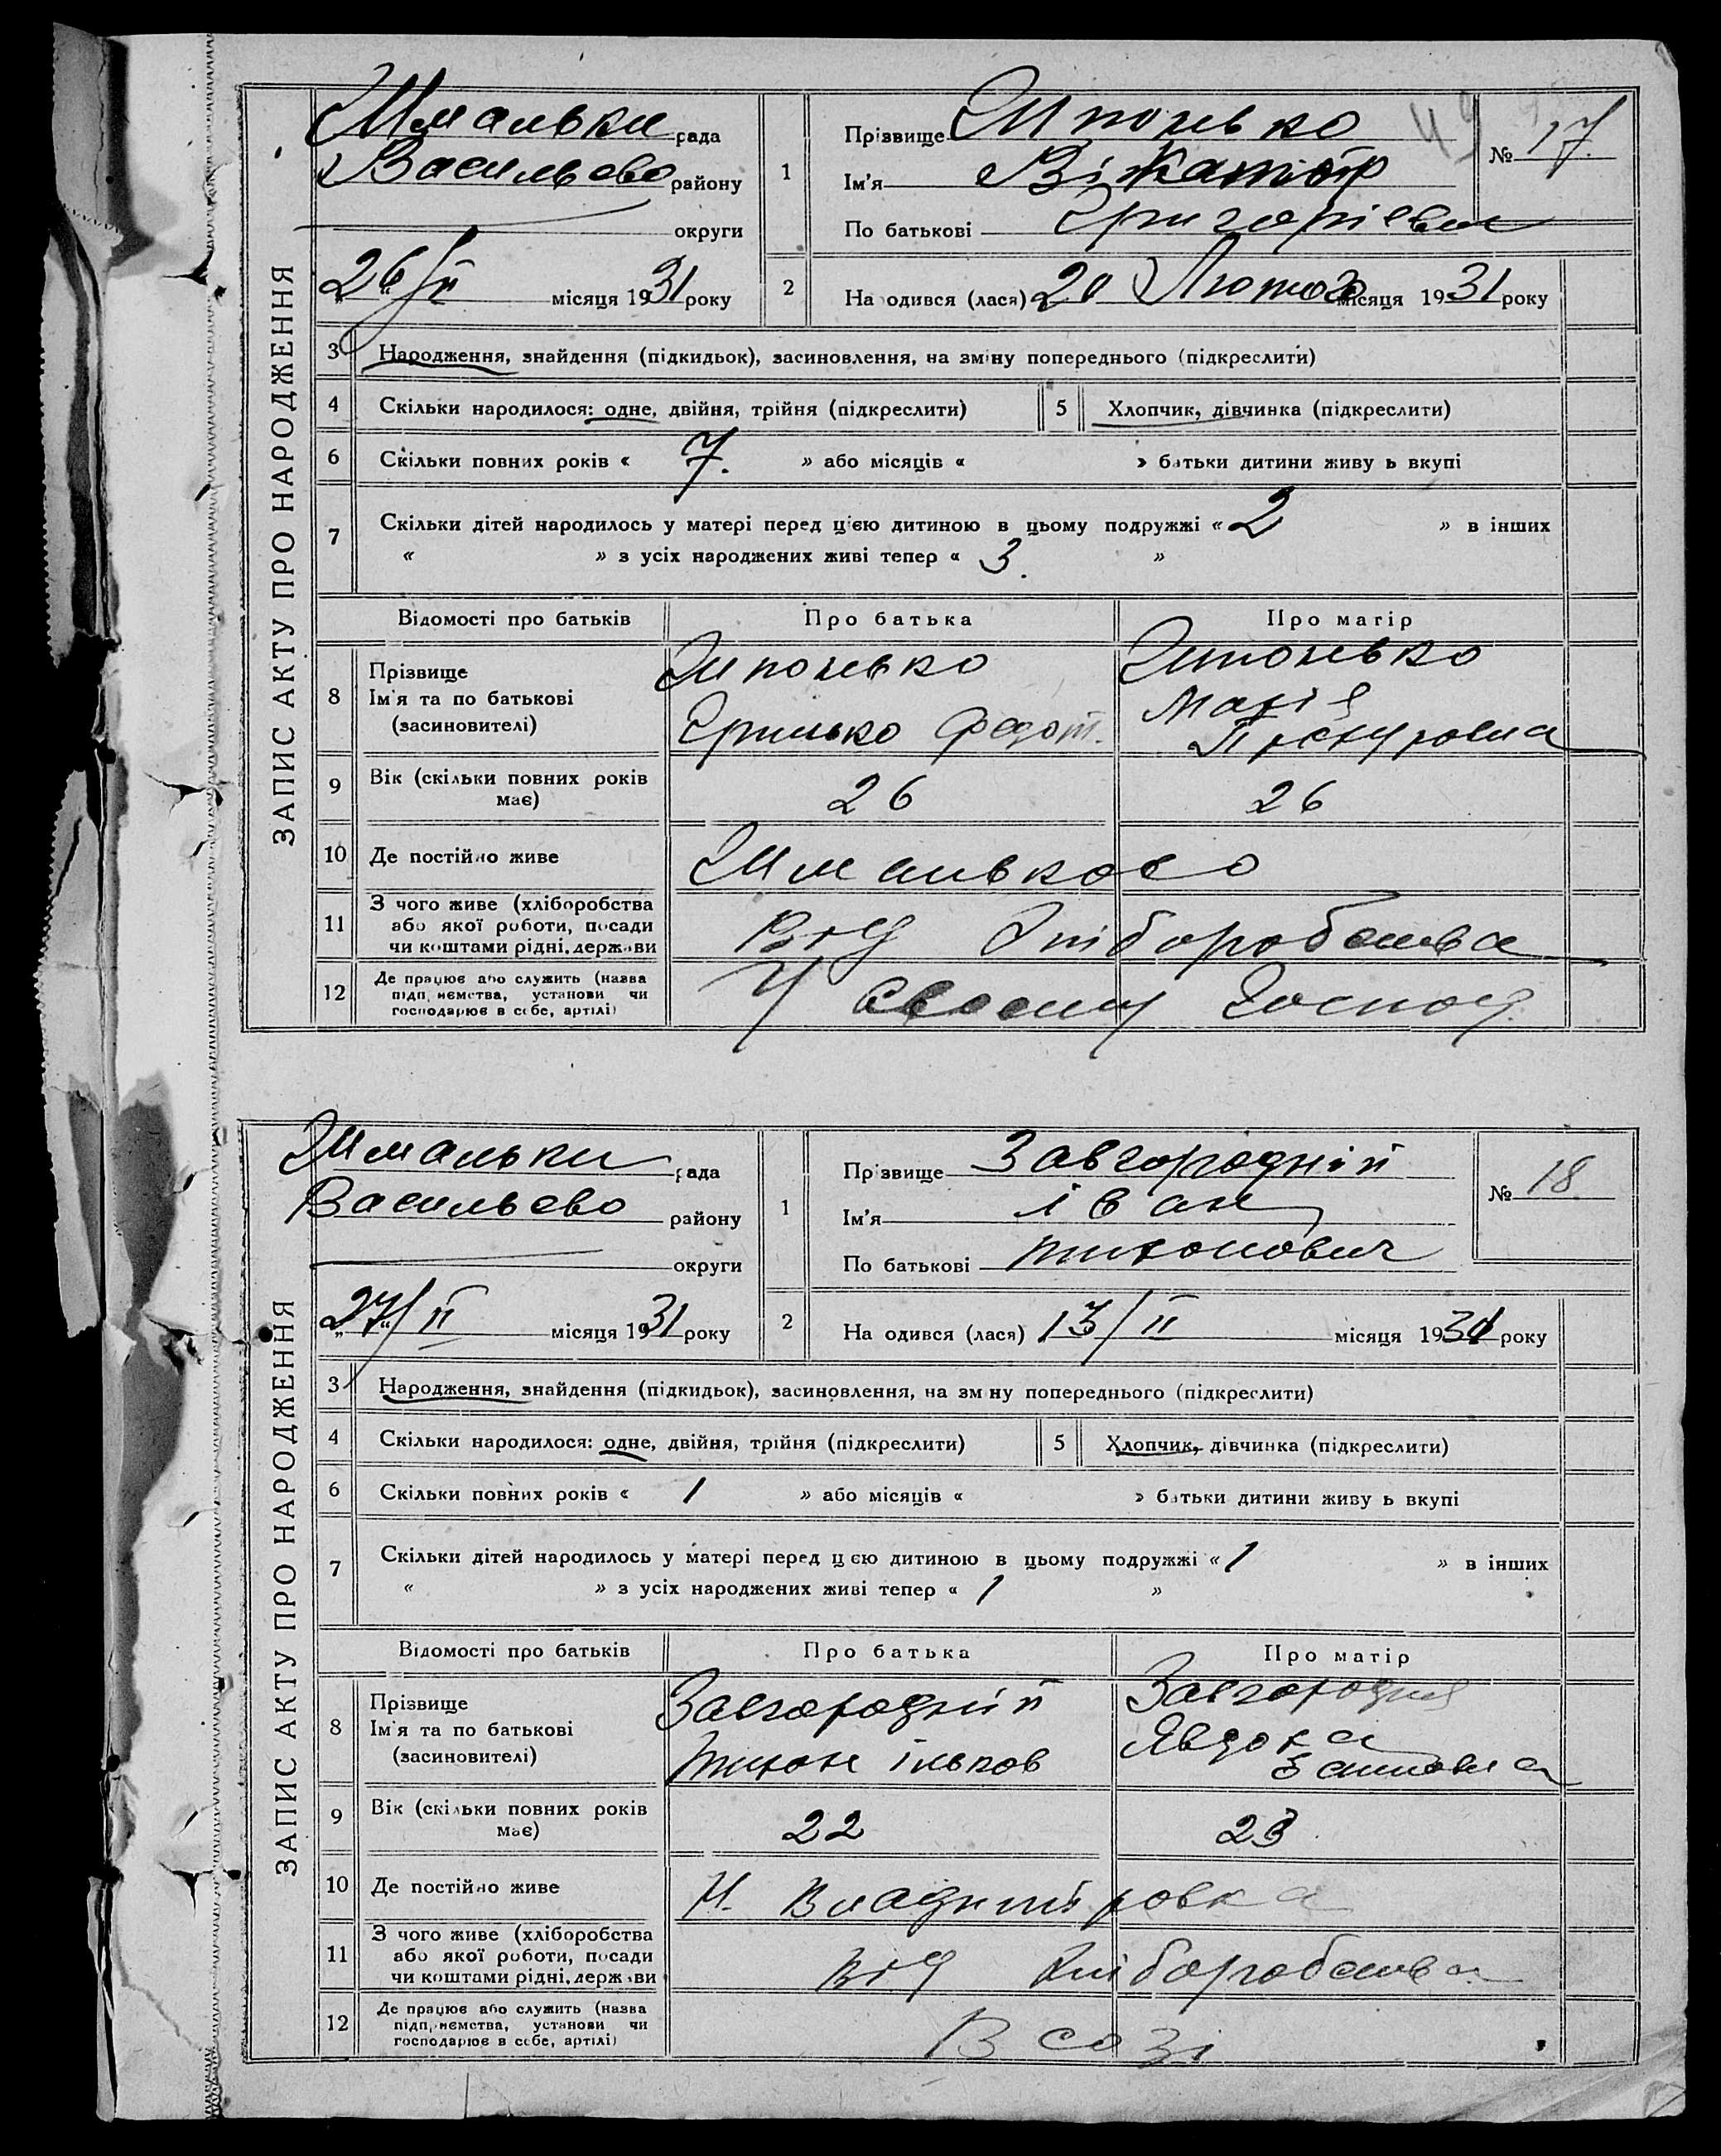 ЗАПИС АКТУ ПРО НАРОДЖЕННЯ
Шмальки рада
Васильево району
округи
26/II місяця 1931 року
1
Прізвище Шпонько
Ім'я
По батькові Григорієвич
49
№ 17.
2
На одився (лася) 20 Лютого місяця 1931 року
3 Народження, знайдення (підкидьок), засиновлення, на зміну попереднього (підкреслити)
4 Скільки народилося: одне, двійня, трійня (підкреслити)
5 Хлопчик, дівчинка (підкреслити)
6 Скільки повних років « 7. » або місяців « » батьки дитини живу ь вкупі
7 Скільки дітей народилось у матері перед цією дитиною в цьому подружжі « 2 » в інших
« » з усіх народжених живі тепер « 3. »
Відомості про батьків Про батька Про матір
8 Прізвище
Ім'я та по батькові
(засиновителі)
Шпонько
Грицько Федот.
Шпонько
Марія
9 Вік (скільки повних років
має)
26
26
10 Де постійно живе
Шмальково
11 З чого живе (хліборобства
або якої роботи, посади
чи коштами рідні, держави
Від Хліборобства
12 Де працює або служить (назва
підприємства, установи чи
господарює в себе, артілі)
У своєму Господ.
ЗАПИС АКТУ ПРО НАРОДЖЕННЯ
Шмальки рада
Васильево району
округи
27/II місяця 1931 року
1
Прізвище Завгородній
Ім'я Іван
По батькові Тихонович
№ 18
2
На одився (лася) 13/II місяця 1931 року
3 Народження, знайдення (підкидьок), засиновлення, на зміну попереднього (підкреслити)
4 Скільки народилося: одне, двійня, трійня (підкреслити)
5 Хлопчик, дівчинка (підкреслити)
6 Скільки повних років « 1 » або місяців « » батьки дитини живу ь вкупі
7 Скільки дітей народилось у матері перед цією дитиною в цьому подружжі « 1 » в інших
« » з усіх народжених живі тепер « 1 »
Відомості про батьків Про батька Про матір
8 Прізвище
Ім'я та по батькові
(засиновителі)
Завгородній
Тихон Ільков
Завгородня
Явдоха
9 Вік (скільки повних років
має)
22
23
10 Де постійно живе
Н. Владимировка
11 З чого живе (хліборобства
або якої роботи, посади
чи коштами рідні, держави
Від Хліборобства
12 Де працює або служить (назва
підприємства, установи чи
господарює в себе, артілі)
В созі